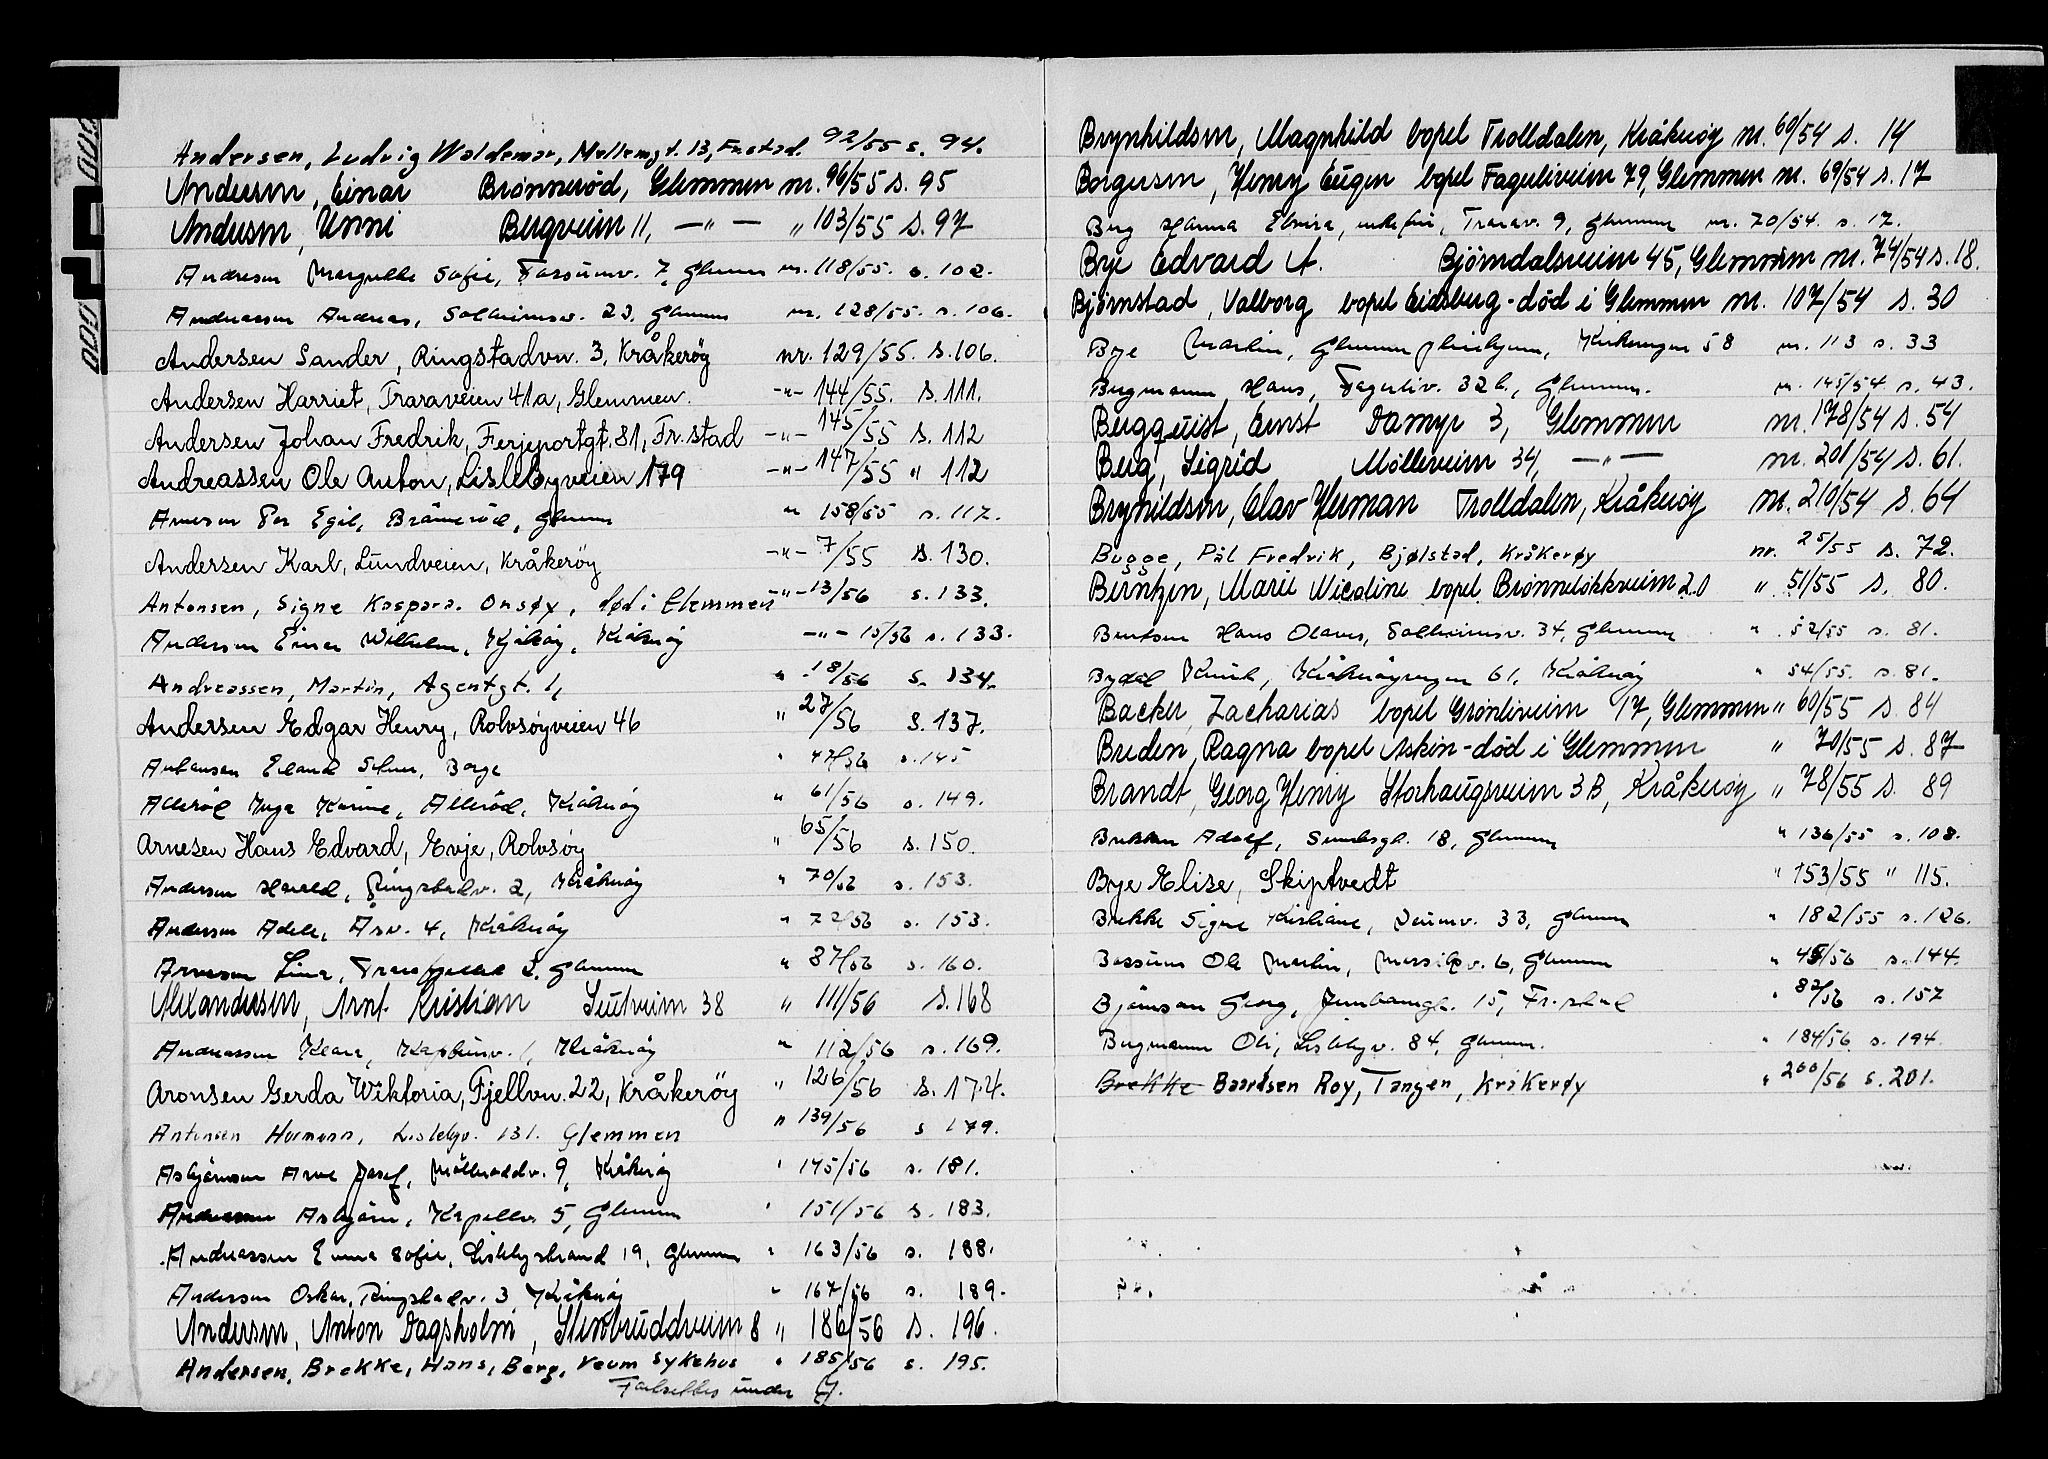 Andersen, Ludvig Waldemar, Mellemgt. 13, Fr.stad. 92/55 s. 94.
Andersen, Einar Brønnerød, Glemmen nr. 96/55 s. 95
Andersen, Unni Bergveien 11, —"— " 103/55 s. 97
Andresen Margrethe Sofie, Fossumv. 7, Glemmen nr. 118/55. s. 102.
Andreassen Andreas, Solheimsv. 23. Glemmen nr. 128/55. s. 106.
Andersen Sander, Ringstadvn. 3, Kråkerøy nr. 129/55. s. 106.
Andersen Harriet, Traraveien 41a, Glemmen. -"- 144/55. s. 111.
Andersen Johan Fredrik, Ferjeportgt. 81, Fr.stad -"- 145/55 s. 112
Andreassen Ole Anton, Lislebyveien 179 -"- 147/55 " 112
Arnesen Per Egil, Glemmen " 158/55 s. 117.
Andersen Karl, Lundveien, Kråkerøy -"- 7/55 s. 130.
Antonsen, Signe Kaspara. Onsøy, død i Glemmen -"- 13/56 s. 133.
Andersen Einar Wilhelm, Kjøkøy, Kråkerøy -"- 15/56 s. 133.
Andreassen, Martin, Agentgt. 1, " 18/56 s. 134.
Andersen Edgar Henry, Rolvsøyveien 46 " 27/56 s. 137.
Erland Borge " 47/56 s. 145
Allerød Inga Karine, Allerød, Kråkerøy " 61/56 s. 149.
Arnesen Hans Edvard, Evje, Rolvsøy " 65/56 s. 150.
Andersen Harald, Ringstadv. 2, Kråkerøy " 70/56 s. 153.
Andersen Adele, Åsv. 4, Kråkerøy " 72/56 s. 153.
Arnesen Lina, Glemmen " 87/56 s. 160.
Alexandersen, Arnt Kristian 38 " 111/56 s. 168
Andreassen Klara, 1, Kråkerøy " 112/56 s. 169.
Aronsen Gerda Wiktoria, Fjellvn. 22, Kråkerøy " 126/56 s. 174.
Antonsen Hermann, Lislebyv. 131. Glemmen " 139/56 s 179.
Asbjørnsen Arne Josef, 9, Kråkerøy " 145/56 s. 181.
Andreassen Asbjørn, Kapellv 5, Glemmen " 151/56 s. 183.
Andreassen Emma Sofie, Lislebystrand 19, Glemmen " 163/56 s. 188.
Andersen Oskar, Ringstadv. 3 Kråkerøy " 167/56 s. 189.
Andersen, Anton Dagsholm, Stenbruddveien 8 " 186/56 s. 196.
Andersen, Brekke, Hans, Berg, Veum sykehus " 185/56 s. 195.
Fortsettes under
Brynhildsen, Magnhild bopel Trolldalen, Kråkerøy nr. 60/54 s. 14
Borgersen, Henry Eugen bopel Fagerliveien 79, Glemmen nr. 69/54 s. 17
Berg Hanna Elvira, enkefru, Trarav. 9, Glemmen nr. 70/54. s. 17.
Bye Edvard A. Bjørndalsveien 45, Glemmen nr. 74/54 s. 18.
Bjørnstad, Valborg bopel Eidsberg - død i Glemmen nr. 107/54 s. 30
Bye Martin, Glemmen pleiehjem, Kirkeveien 58 nr. 113 s. 33
Bergmann Hans, Fagerliv. 32 b., Glemmen. nr. 145/54 s. 43.
Bergquist, Ernst Damyr 3, Glemmen nr. 178/54 s. 54
Berg, Sigrid Mølleveien 34, —"— nr. 201/54 s. 61.
Brynildsen, Olav Herman Trolldalen, Kråkerøy nr. 210/54 s. 64
Bugge, Pål Fredrik, Bjølstad, Kråkerøy nr. 25/55 s. 72.
Berntzen, Marie Nicoline bopel Brønneløkkveien 20 " 51/55 s. 80.
Berntsen Hans Olaves, Solheimsv. 34, Glemmen " 52/55 s. 81.
Bydal Kåkerøyveien 61, Kråkerøy " 54/55. s. 81.
Backer, Zacharias bopel Grønliveien 17, Glemmen " 60/55 s. 84
Breden, Ragna bopel Askim - død i Glemmen " 70/55 s. 87
Brandt, Georg Henry Storhaugveien 3B, Kråkerøy " 78/55 s. 89
Brekken Adolf, 18, Glemmen " 136/55 s. 108.
Bye Elise, Skiptvedt " 153/55 " 115.
Brekke Signe Kristiane, Veumv. 33, Glemmen " 182/55 s. 126.
Bossum Ole Martin, 6, Glemmen " 45/56 s. 144.
Bjørnson Georg, Jernbanegt. 15, Fr.stad " 82/56 s. 157
Bergmann Oli, Lislebyv. 84, Glemmen. " 184/56 s. 194.
Brekke Baardsen Roy, Tangen, Kråkerøy " 200/56 s. 201.